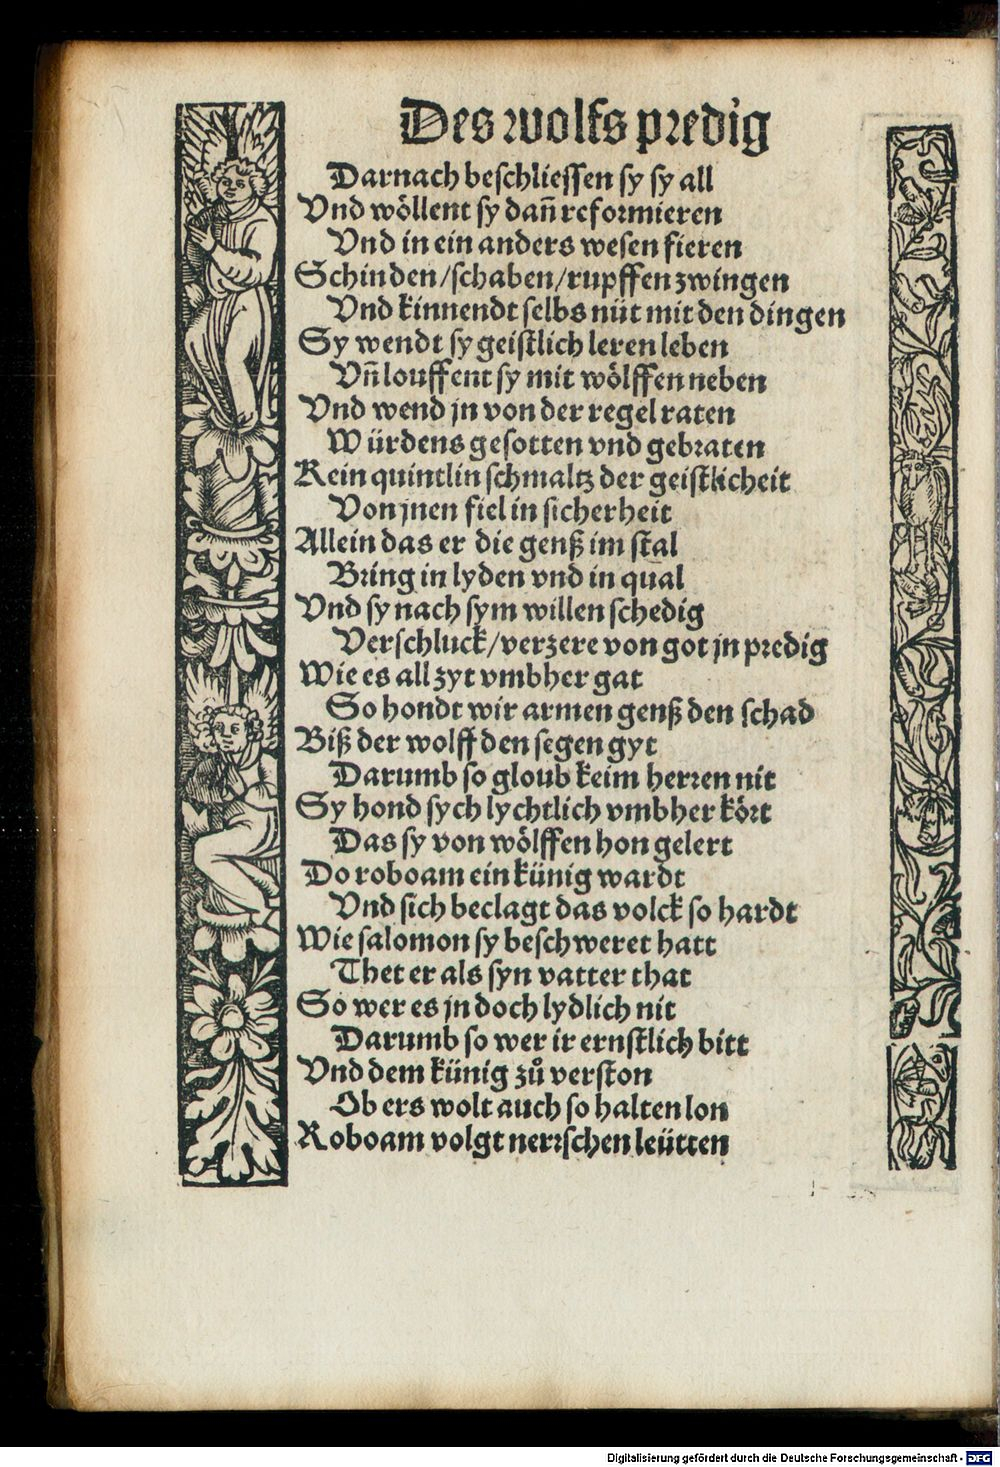 Des wolfs predig
Darnach beschliessen sy sy all
Vnd wöllent sy dañ reformieren
Vnd in ein anders wesen fieren
Schinden/schaben/rupffen zwingen
Vnd kinnendt selbs nüt mit den dingen
Sy wendt sy geistlich leren leben
Vñ louffent sy mit wölffen neben
Vnd wend jn von der regel raten
Würdens gesotten vnd gebraten
Kein quintlin schmaltz der geistlicheit
Von jnen fiel in sicherheit
Allein das er die genß im stal
Bring in lyden vnd in qual
Vnd sy nach sym willen schedig
Verschluck/verzere von got jn predig
Wie es all zyt vmbher gat
So hondt wir armen genß den schad
Biß der wolff den segen gyt
Darumb so gloub keim herren nit
Sy hond sych lychtlich vmbher kört
Das sy von wölffen hon gelert
Do roboam ein künig wardt
Vnd sich beclagt das volck so hardt
Wie salomon sy beschweret hatt
Thet er als syn vatter that
So wer es jn doch lydlich nit
Darumb so wer ir ernstlich bitt
Vnd dem künig zů verston
Ob ers wolt auch so halten lon
Roboam volgt nerrschen leütten
Digitalisierung gefördert durch die Deutsche Forschungsgemeinschaft - DFG